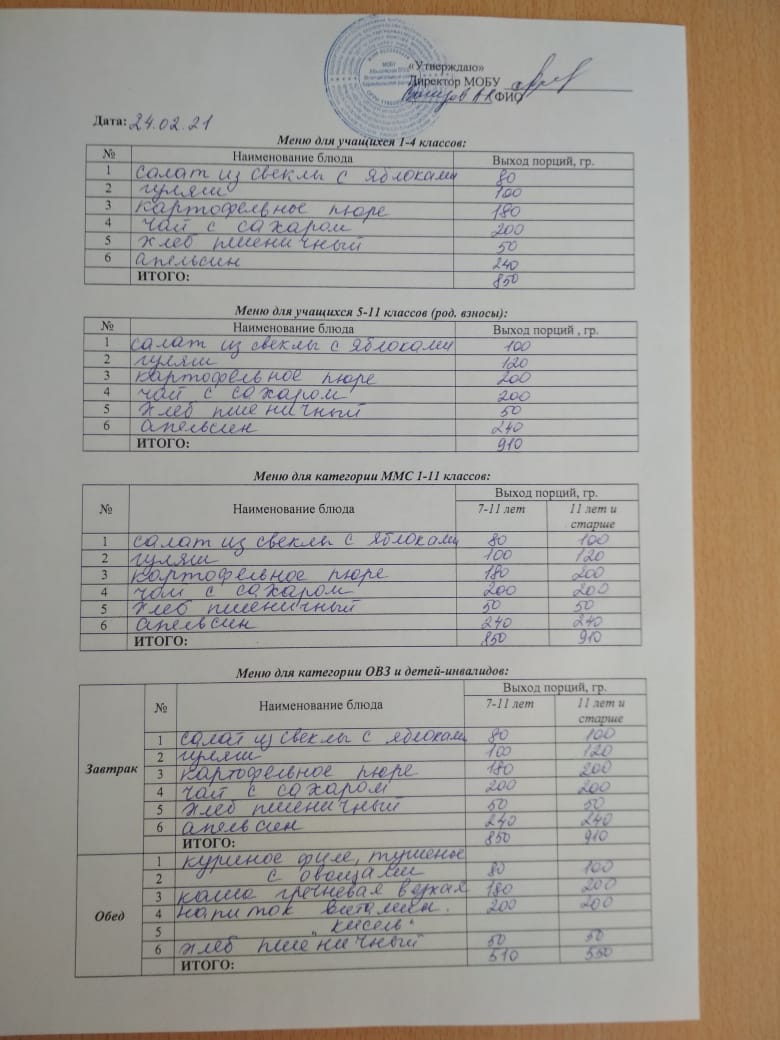 «Утверждаю»
Директор МОБУ
ФИО
Дата: 24.02.21
Меню для учащихся 1-4 классов:
№ Наименование блюда Выход порций, гр.
1 салат из свеклы с яблоками 80
2 гуляш 100
3 картофельное пюре 180
4 чай с сахаром 200
5 хлеб пшеничный 50
6 апельсин 240
ИТОГО: 850
Меню для учащихся 5-11 классов (род. взносы):
№ Наименование блюда Выход порций , гр.
1 салат из свеклы с яблоками 100
2 гуляш 120
3 картофельное пюре 200
4 чай с сахаром 200
5 хлеб пшеничный 50
6 апельсин 240
ИТОГО: 910
Меню для категории ММС 1-11 классов:
№ Наименование блюда Выход порций, гр.
7-11 лет 11 лет и
старше
1 салат из свеклы с яблоками 80 100
2 гуляш 100 120
3 картофельное пюре 180 200
4 чай с сахаром 200 200
5 хлеб пшеничный 50 50
6 апельсин 240 240
ИТОГО: 850 910
Меню для категории ОВЗ и детей-инвалидов:
№ Наименование блюда Выход порций, гр.
7-11 лет 11 лет и
старше
Завтрак
1 салат из свеклы с яблоками 80 100
2 гуляш 100 120
3 картофельное пюре 180 200
4 чай с сахаром 200 200
5 хлеб пшеничный 50 50
6 апельсин 240 240
ИТОГО: 850 910
Обед
1 куриное филе, тушеное
2 с овощами 80 100
3 каша гречневая 180 200
4 напиток витамин. 200 200
5 „кисель"
6 хлеб пшеничный 50 50
ИТОГО: 510 550